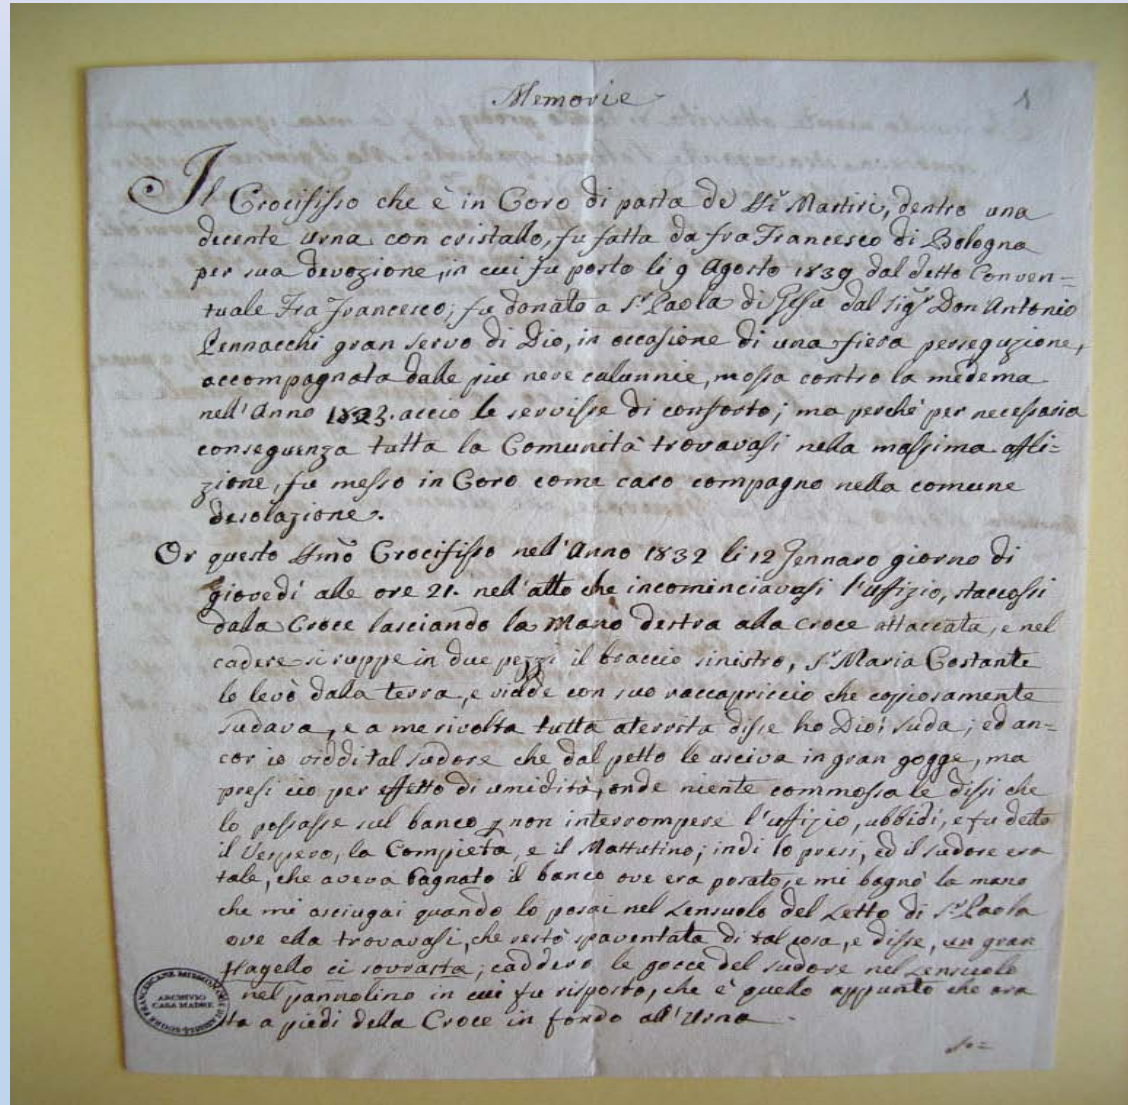 Memorie
1
Il Crocifisso che è in Coro di pasta de SS.i Martiri, dentro una
decente Urna con cristallo, fu fatta da fra Francesco di Bologna
per sua devozione, in cui fu posto li 9 Agosto 1839 dal detto Conven=
tuale Fra Francesco; fu donato a Sr Paola di Gesu dal Sigr Don Antonio
Pennacchi gran servo di Dio, in occasione di una fiera perseguzione,
accompagnata dalle piu nere calunnie, mossa contro la medema
nell'Anno acciò le servisse di conforto; ma perchè per necessaria
conseguenza tutta la Comunità trovavasi nella massima affli=
zione, fu messo in Coro come caro compagno nella comune
desolazione.
Or questo SSmo Crocifisso nell'Anno 1832 li 12 Gennaro giorno di
giovedì alle ore 21. nell'atto che incominciavasi l'uffizio, staccossi
dala Croce lasciando la Mano destra ala croce attaccata, e nel
cadere si ruppe in due pezzi il braccio sinistro, Sr Maria Costante
lo levò dala terra, e vidde con suo raccapriccio che copiosamente
sudava, e a me rivolta tutta aterrita disse ho Dio! suda; ed an=
cor io viddi tal sudore che dal petto le usciva in gran gogge, ma
presi ciò per effetto di umidità, onde niente commossa le dissi che
lo possasse sul banco p non interrompere l'uffizio, ubbidì, e fu detto
il Vespero, la Compieta, e il Mattutino; indi lo presi, ed il sudore era
tale, che aveva bagnato il banco ove era posato, e mi bagnò la mano
che mi asciugai quando lo posai nel Lensuolo del Letto di Sr Paola
ove ella trovavasi, che restò spaventata di tal cosa, e disse, un gran
flagello ci sovrasta; caddero le gocce del sudore nel Lensuolo
nel pannolino in cui fu risposto, che è quello appunto che ora
sta a piedi della Croce in fondo all'Urna.
ARCHIVIO
CASA MADRE